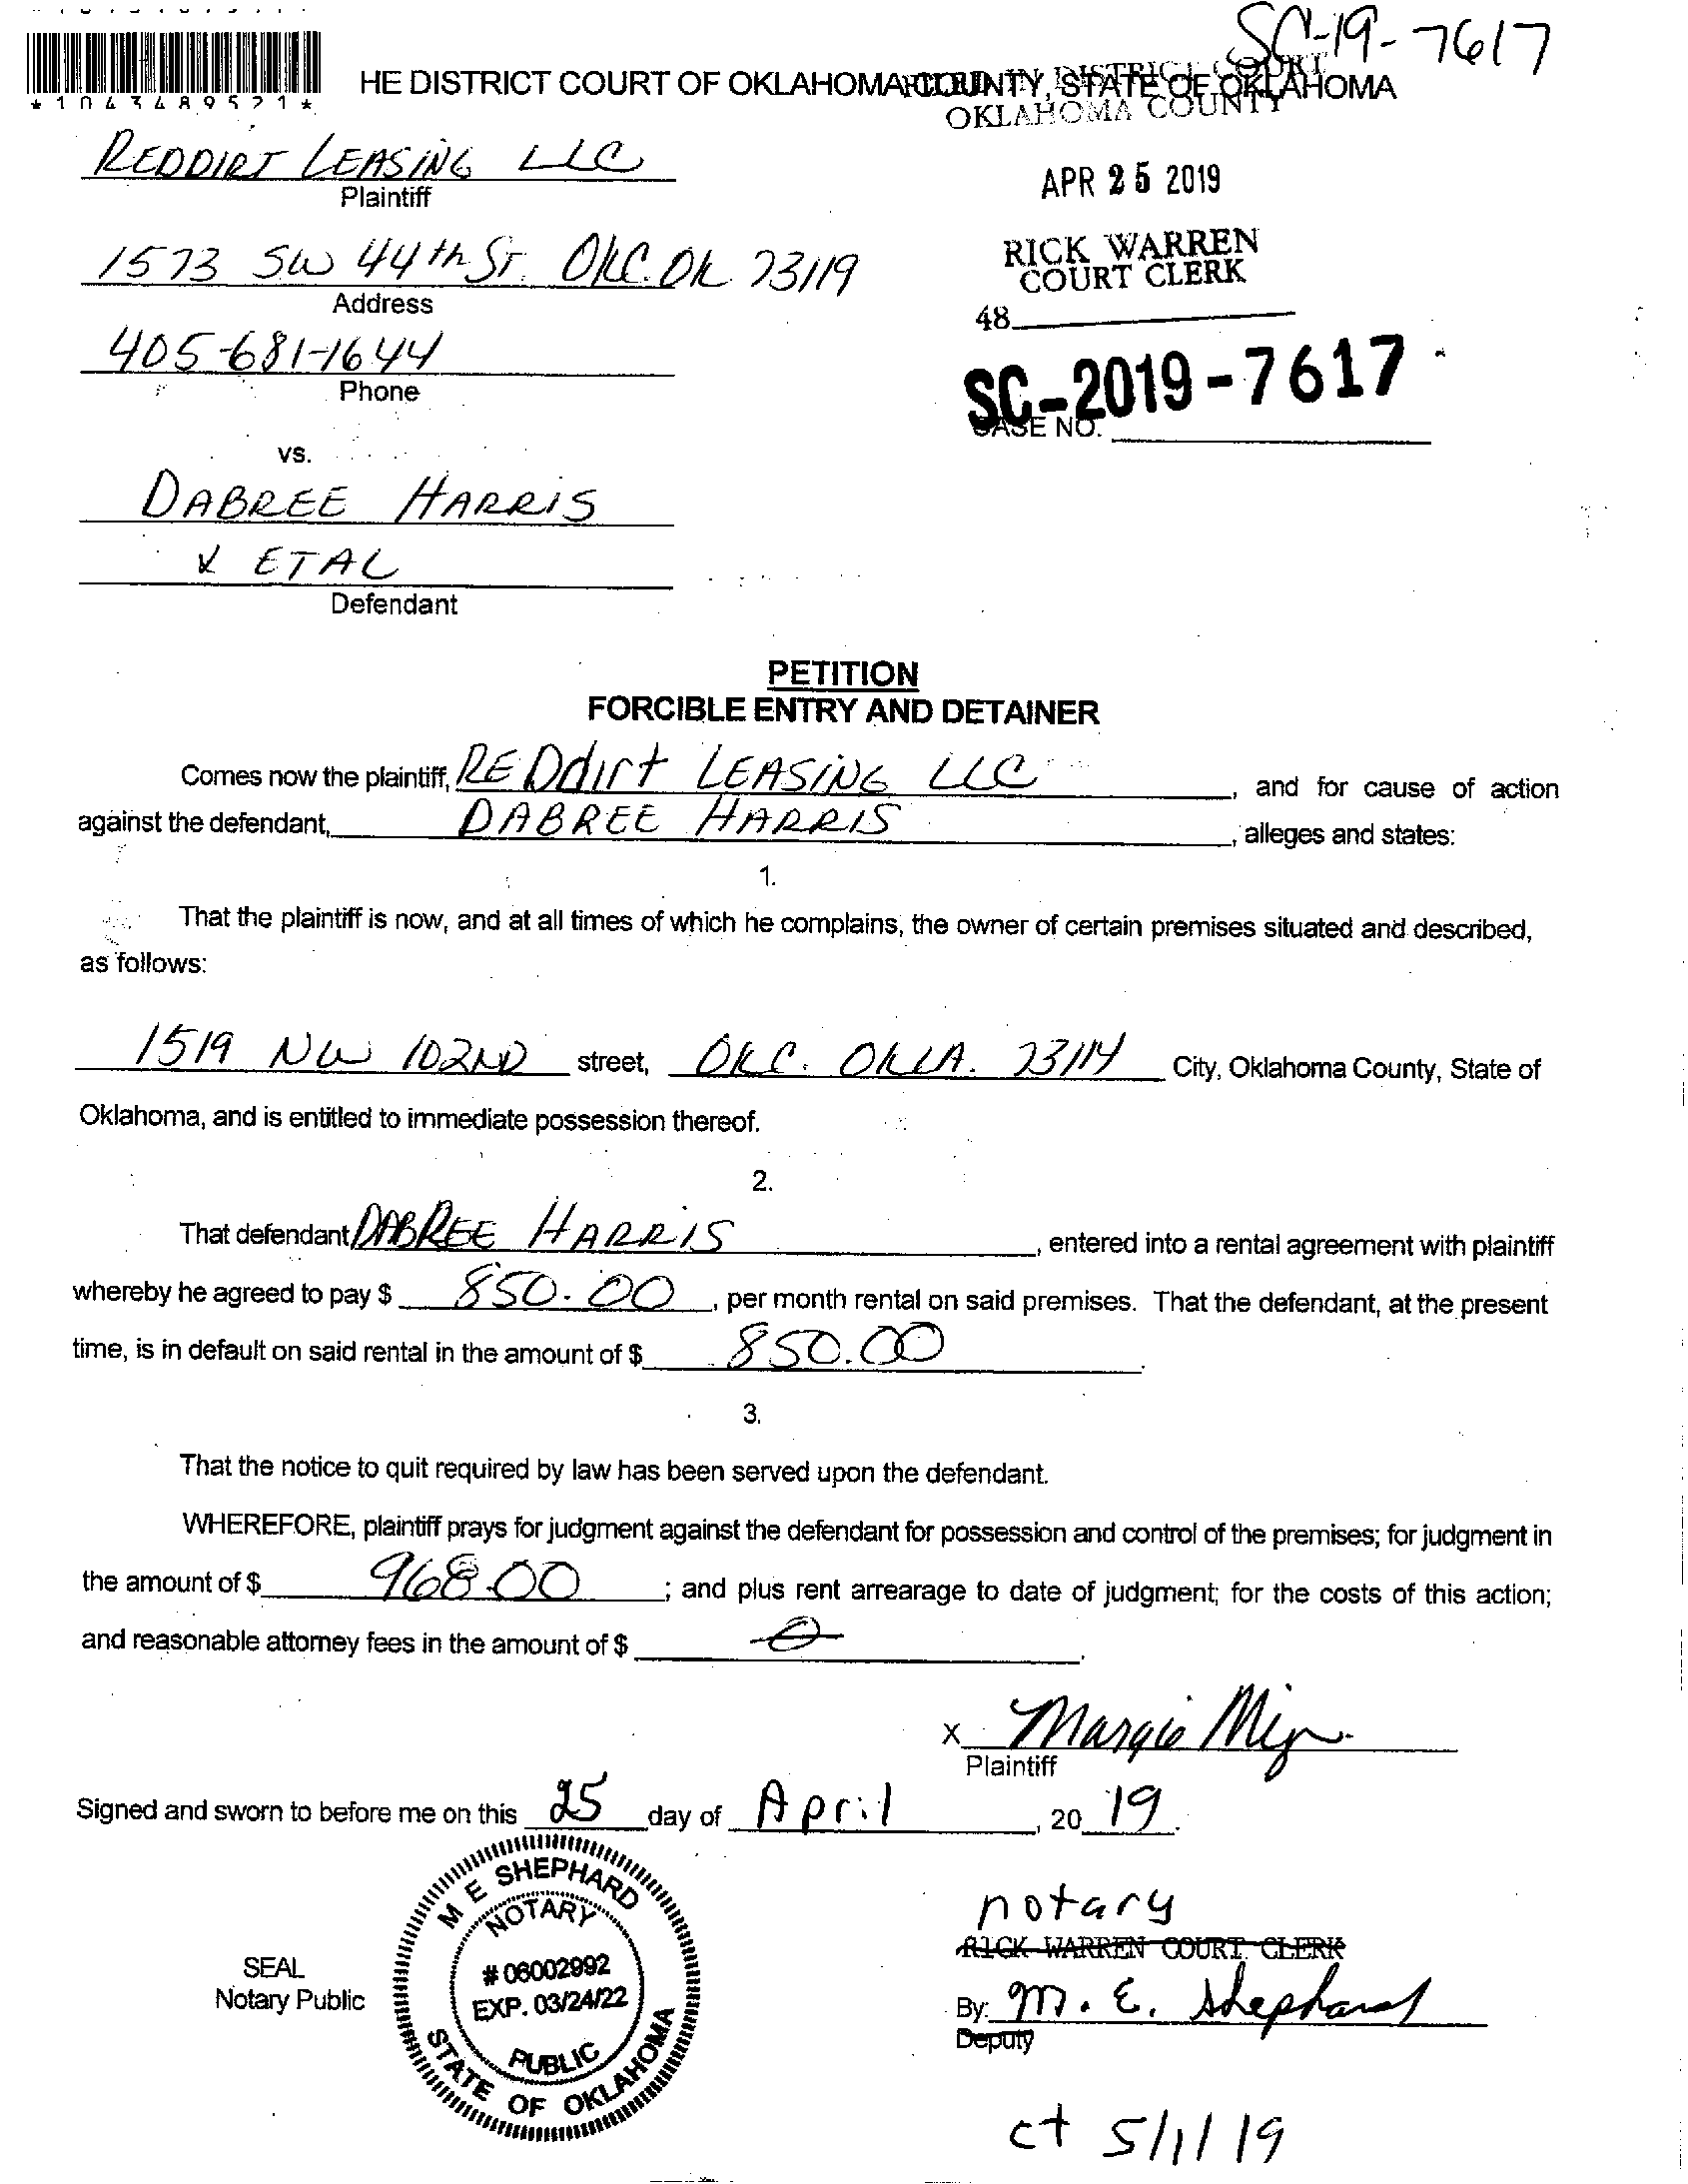 SC-19-7617
*1043489521*
HE DISTRICT COURT OF OKLAHOMA COUNTY, STATE OF OKLAHOMA
FILED IN DISTRICT COURT
OKLAHOMA COUNTY
REDDIRT LEASING LLC
Plaintiff
APR 25 2019
1573 SW 44th ST. OKC. OK 73119
Address
RICK WARREN
COURT CLERK
48
405-681-1644
Phone
SC-2019-7617
CASE NO.
vs.
DABREE HARRIS
& ETAL
Defendant
PETITION
FORCIBLE ENTRY AND DETAINER
Comes now the plaintiff, REDdirt LEASING LLC, and for cause of action
against the defendant, DABREE HARRIS, alleges and states:
1.
That the plaintiff is now, and at all times of which he complains, the owner of certain premises situated and described,
as follows:
1519 NW 102ND street, OKC. OKLA. 73114 City, Oklahoma County, State of
Oklahoma, and is entitled to immediate possession thereof.
2.
That defendant DABREE HARRIS, entered into a rental agreement with plaintiff
whereby he agreed to pay $ 850.00, per month rental on said premises. That the defendant, at the present
time, is in default on said rental in the amount of $ 850.00.
3.
That the notice to quit required by law has been served upon the defendant.
WHEREFORE, plaintiff prays for judgment against the defendant for possession and control of the premises; for judgment in
the amount of $ 968.00; and plus rent arrearage to date of judgment; for the costs of this action;
and reasonable attorney fees in the amount of $ 0.
X Margie
Plaintiff
Signed and sworn to before me on this 25 day of April, 20 19.
M E SHEPHARD
NOTARY
# 06002992
EXP. 03/24/22
PUBLIC
STATE OF OKLAHOMA
SEAL
Notary Public
notary
RICK WARREN COURT CLERK
By: M. E. Shephard
Deputy
ct 5/1/19